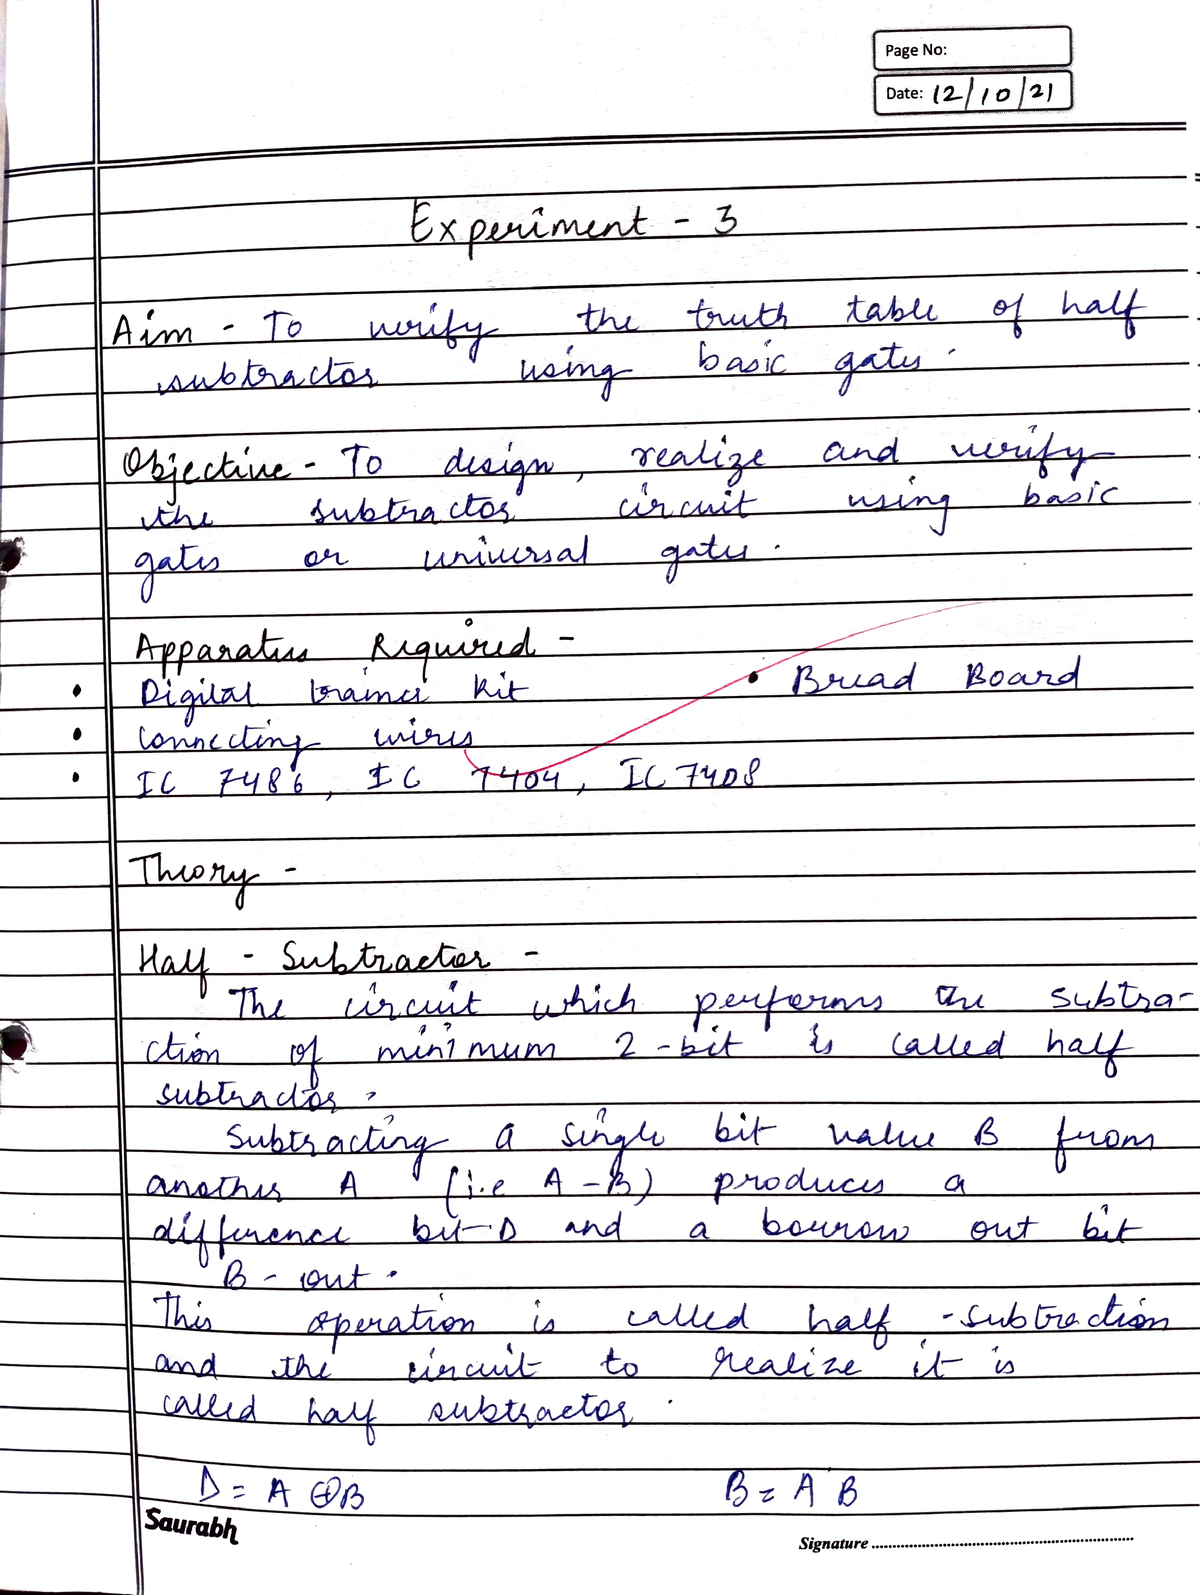 Page No:
Date: 12/10/21
Experiment - 3
Aim - To verify the truth table of half
subtractor using basic gates.
Objective - To design, realize and verify
the subtractor circuit using basic
gates or universal gates.
Apparatus Required -
• Digital trainer kit • Bread Board
• Connecting wires
• IC 7486, IC 7404, IC 7408
Theory -
Half - Subtractor -
The circuit which performs the subtra-
ction of minimum 2-bit is called half
subtractor.
Subtracting a single bit value B from
another A (i.e A-B) produces a
difference bit D and a bourrow out bit
B-out.
This operation is called half-subtraction
and the circuit to realize it is
called half subtractor.
D = A ⊕ B B = A'B
Saurabh
Signature ..........